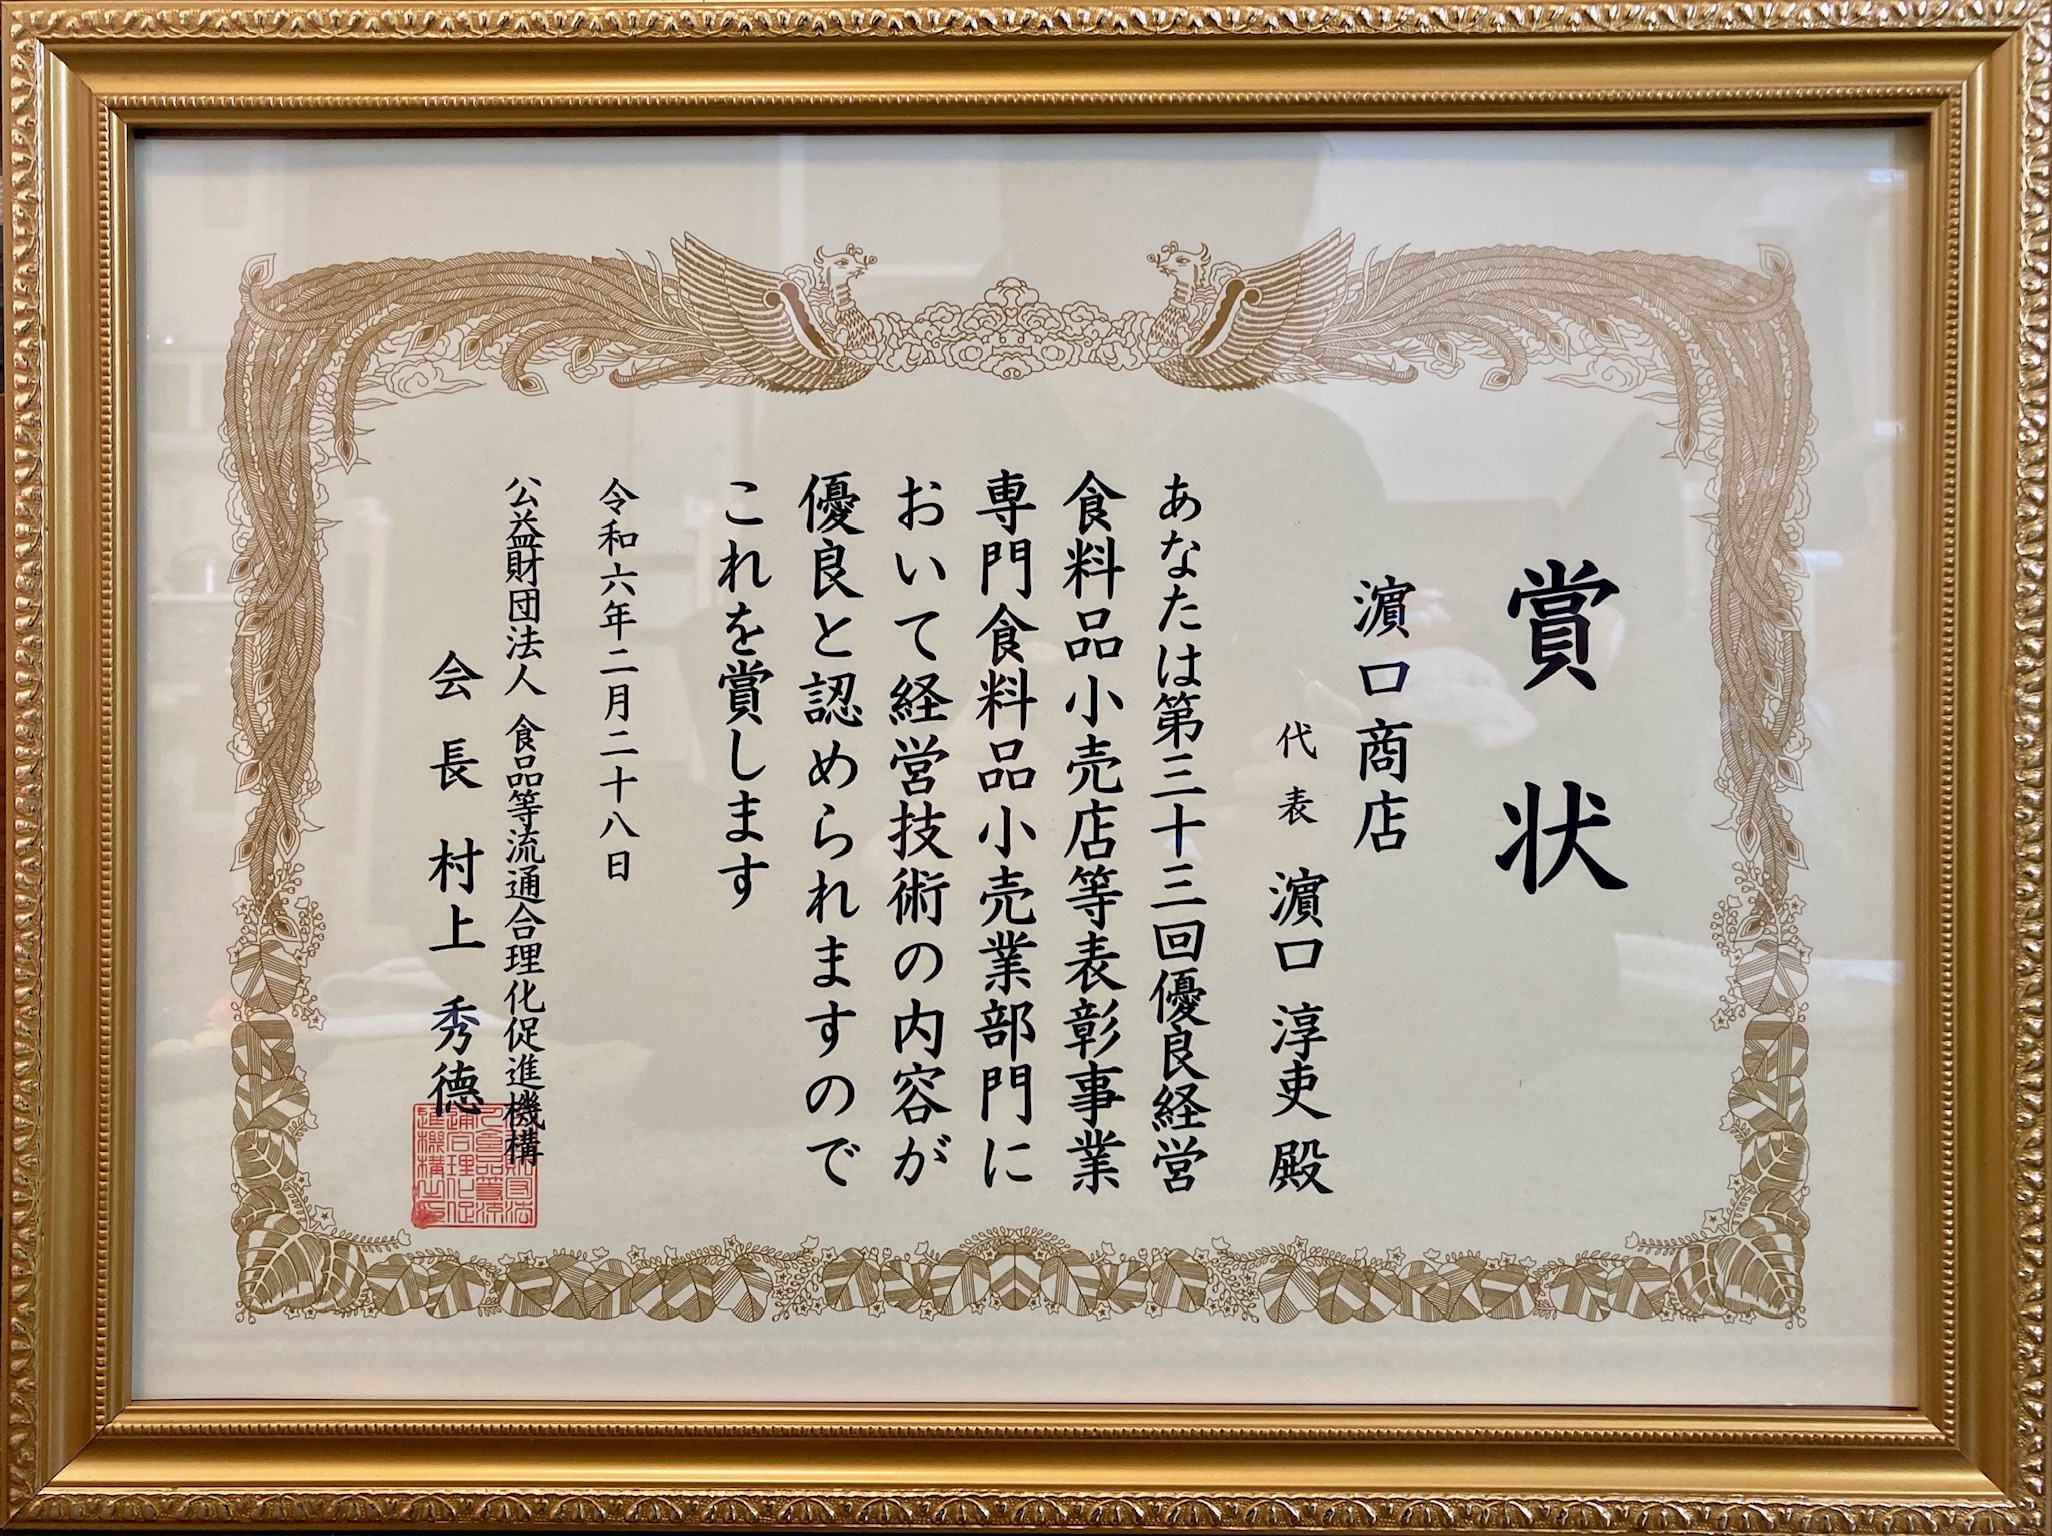 賞状
濵口商店
代表 濵口 淳吏 殿
あなたは第三十三回優良経営
食料品小売店等表彰事業
専門食料品小売業部門に
おいて経営技術の内容が
優良と認められますので
これを賞します
令和六年二月二十八日
公益財団法人 食品等流通合理化促進機構
会長 村上 秀德